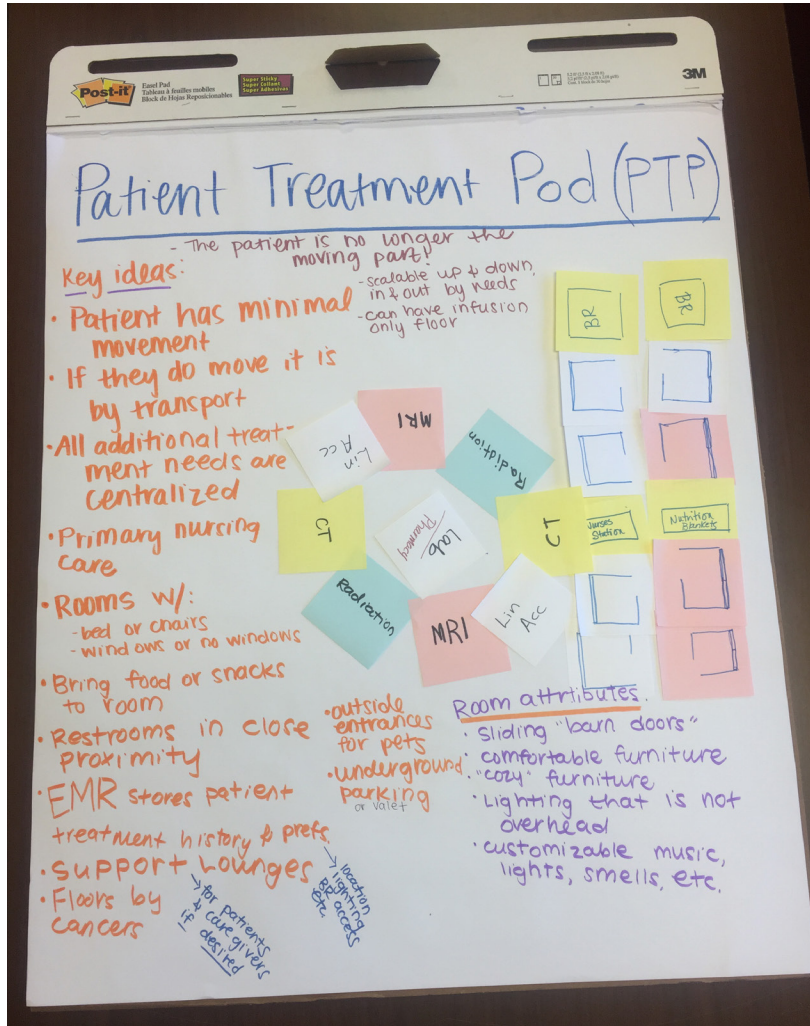 Post-it
Easel Pad
Tableau à feuilles mobiles
Block de Hojas Reposicionables
Super Sticky
Super Collant
Super Adhesivas
3M
Patient Treatment Pod (PTP)
- The patient is no longer the
moving part!
- scalable up & down,
in & out by needs
- can have infusion
only floor
Key ideas:
• Patient has minimal
movement
• If they do move it is
by transport
• All additional treat-
ment needs are
centralized
• Primary nursing
care
• Rooms w/:
- bed or chairs
- windows or no windows
• Bring food or snacks
to room
• Restrooms in close
proximity
• EMR stores patient
treatment history & prefs.
→ location
lighting
BR access
etc
• Support Lounges
→ for patients
& care givers
if desired
• Floors by
cancers
• outside
entrances
for pets
• underground
parking
or valet
BR
BR
Lin
Acc
MRI
Radiation
CT
Lab
Pharmacy
CT
Nurses
Station
Nutrition
Blankets
Radiation
MRI
Lin
Acc
Room attrtibutes.
• Sliding "barn doors"
• comfortable furniture
• "cozy" furniture
• Lighting that is not
overhead
• customizable music,
lights, smells, etc.